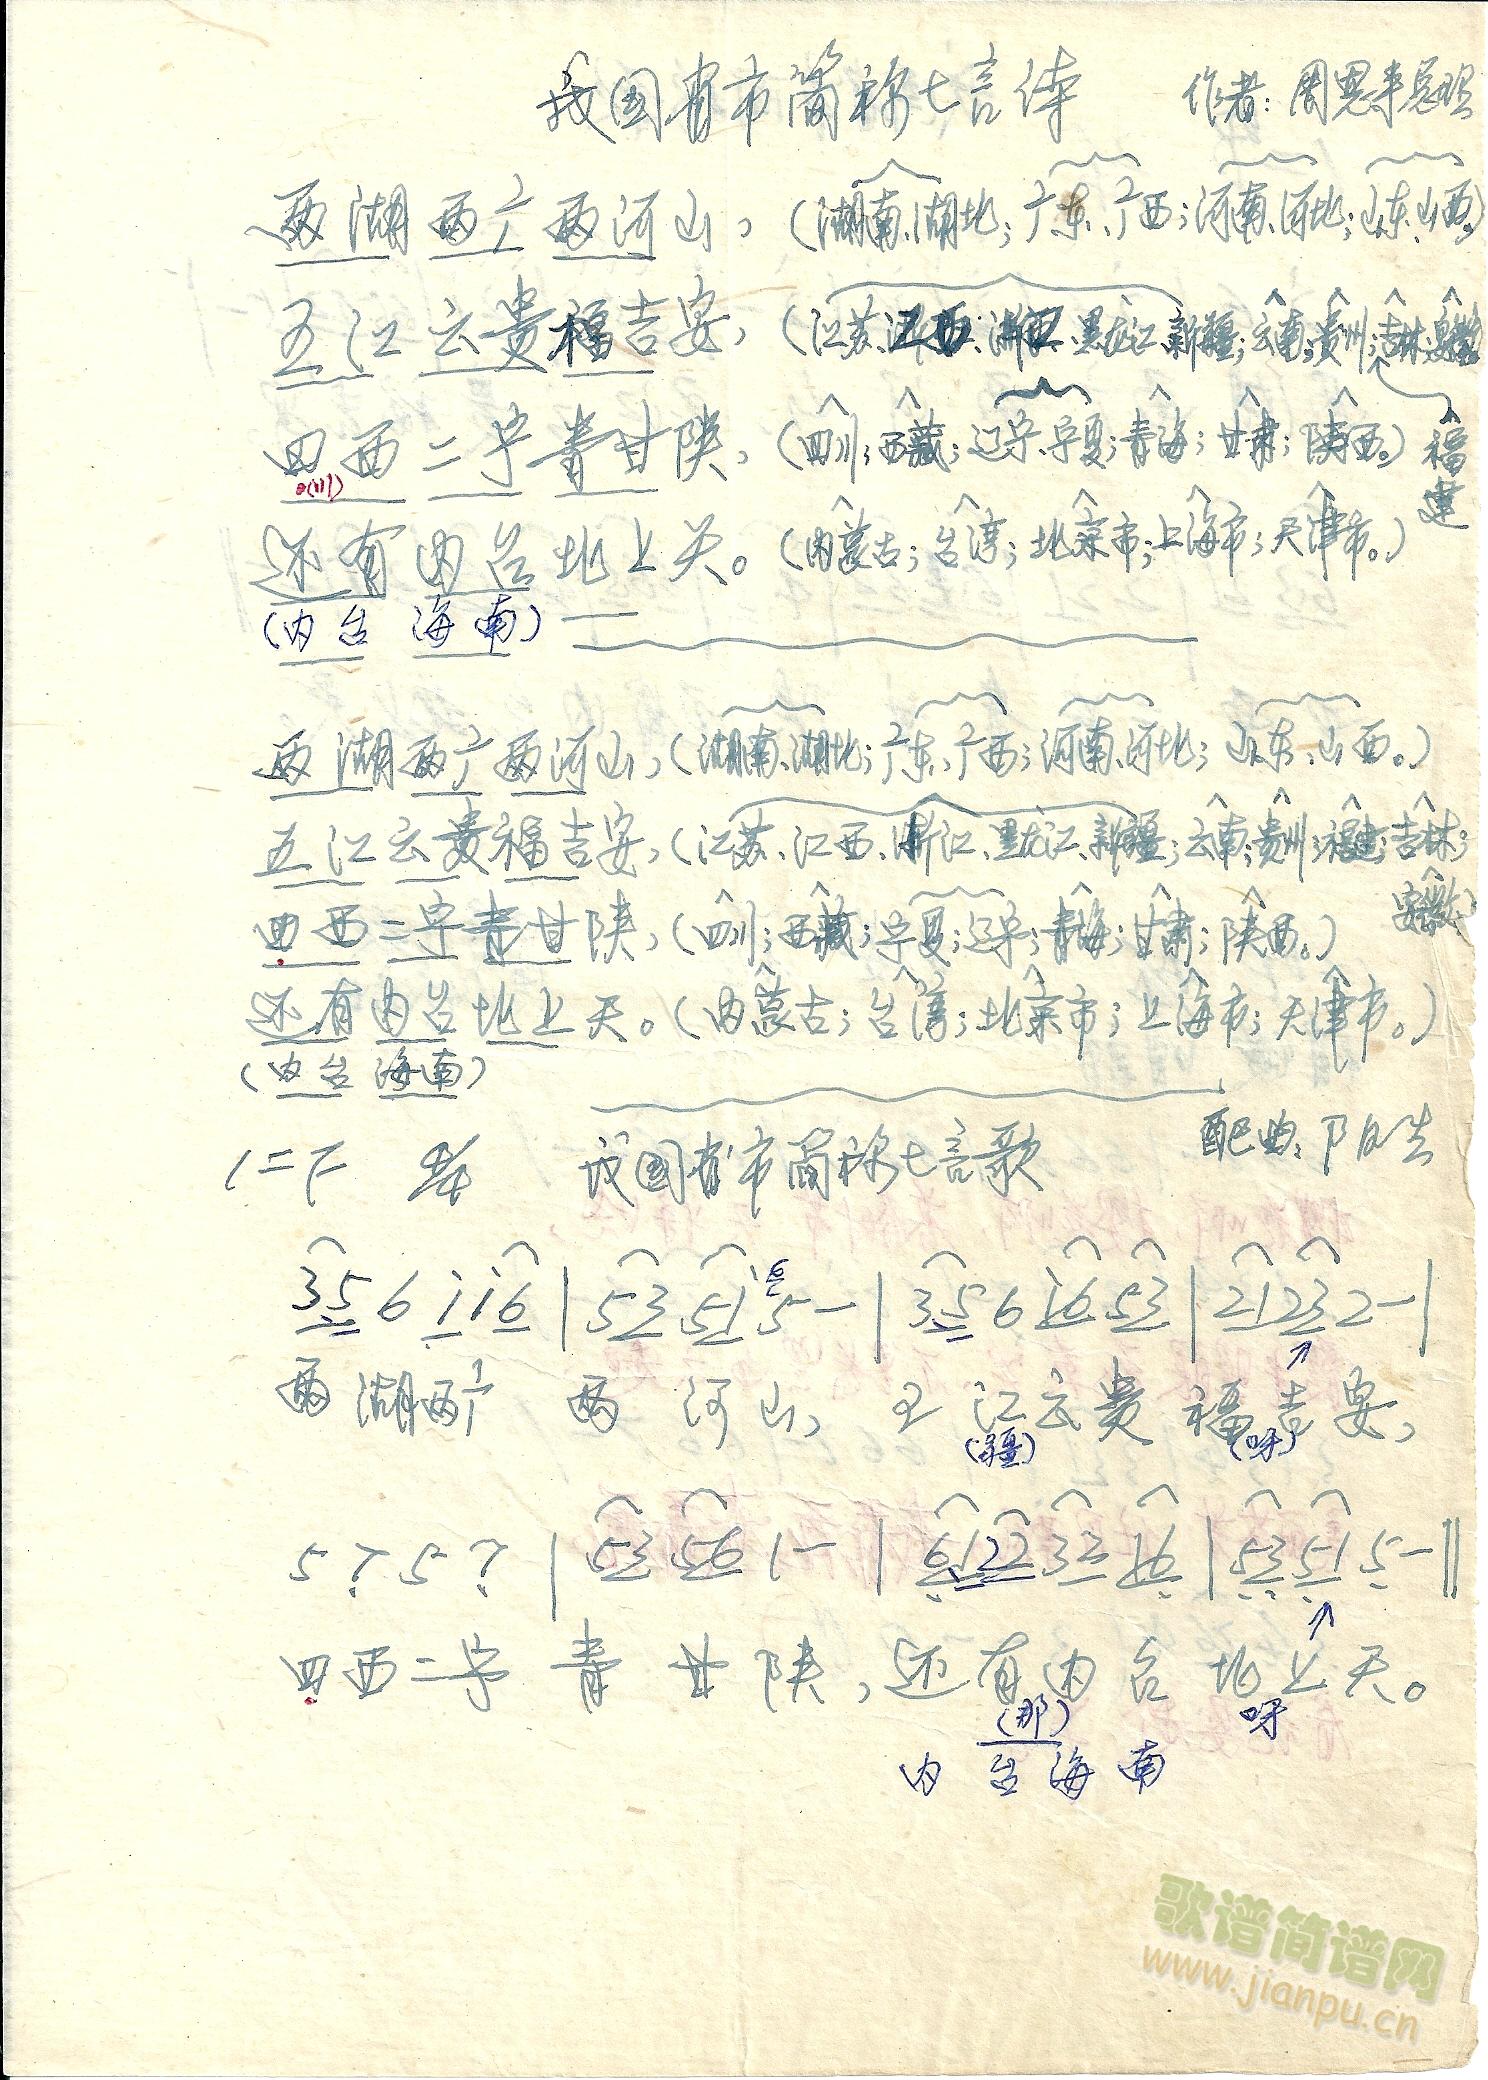 我国省市简称七言体 作者:周恩来总理
两湖两广两河山,(湖南、湖北;广东、广西;河南、河北;山东、山西。)
五江云贵福吉安,(江苏、江西、浙江、黑龙江、新疆;云南;贵州;吉林;安徽
四西二宁青甘陕,(四川;西藏;辽宁、宁夏;青海;甘肃;陕西。)福建
(川)
还有内台北上天。(内蒙古;台湾;北京市;上海市;天津市。)
(内台海南)
两湖两广两河山,(湖南、湖北;广东、广西;河南、河北;山东、山西。)
五江云贵福吉安,(江苏、江西、浙江、黑龙江、新疆;云南;贵州;福建;吉林;
安徽)
四西二宁青甘陕,(四川;西藏;宁夏;辽宁;青海;甘肃;陕西。)
还有内台北上天。(内蒙古;台湾;北京市;上海市;天津市。)
(内台海南)
1=F 4/4 我国省市简称七言歌 配曲:阳生
35 6 i i6 | 53 5i 6 5 — | 35 6 i6 53 | 21 23 2 — |
两湖两广 两河山, 五江云贵福吉安,
(疆) (呀)
5 ? 5 ? | 53 56 1 — | 6122 33 16 | 53 51 5 — ||
四西二宁青甘陕,还有内台北上天。
(那) 呀
内台海南
歌谱简谱网
www.jianpu.cn